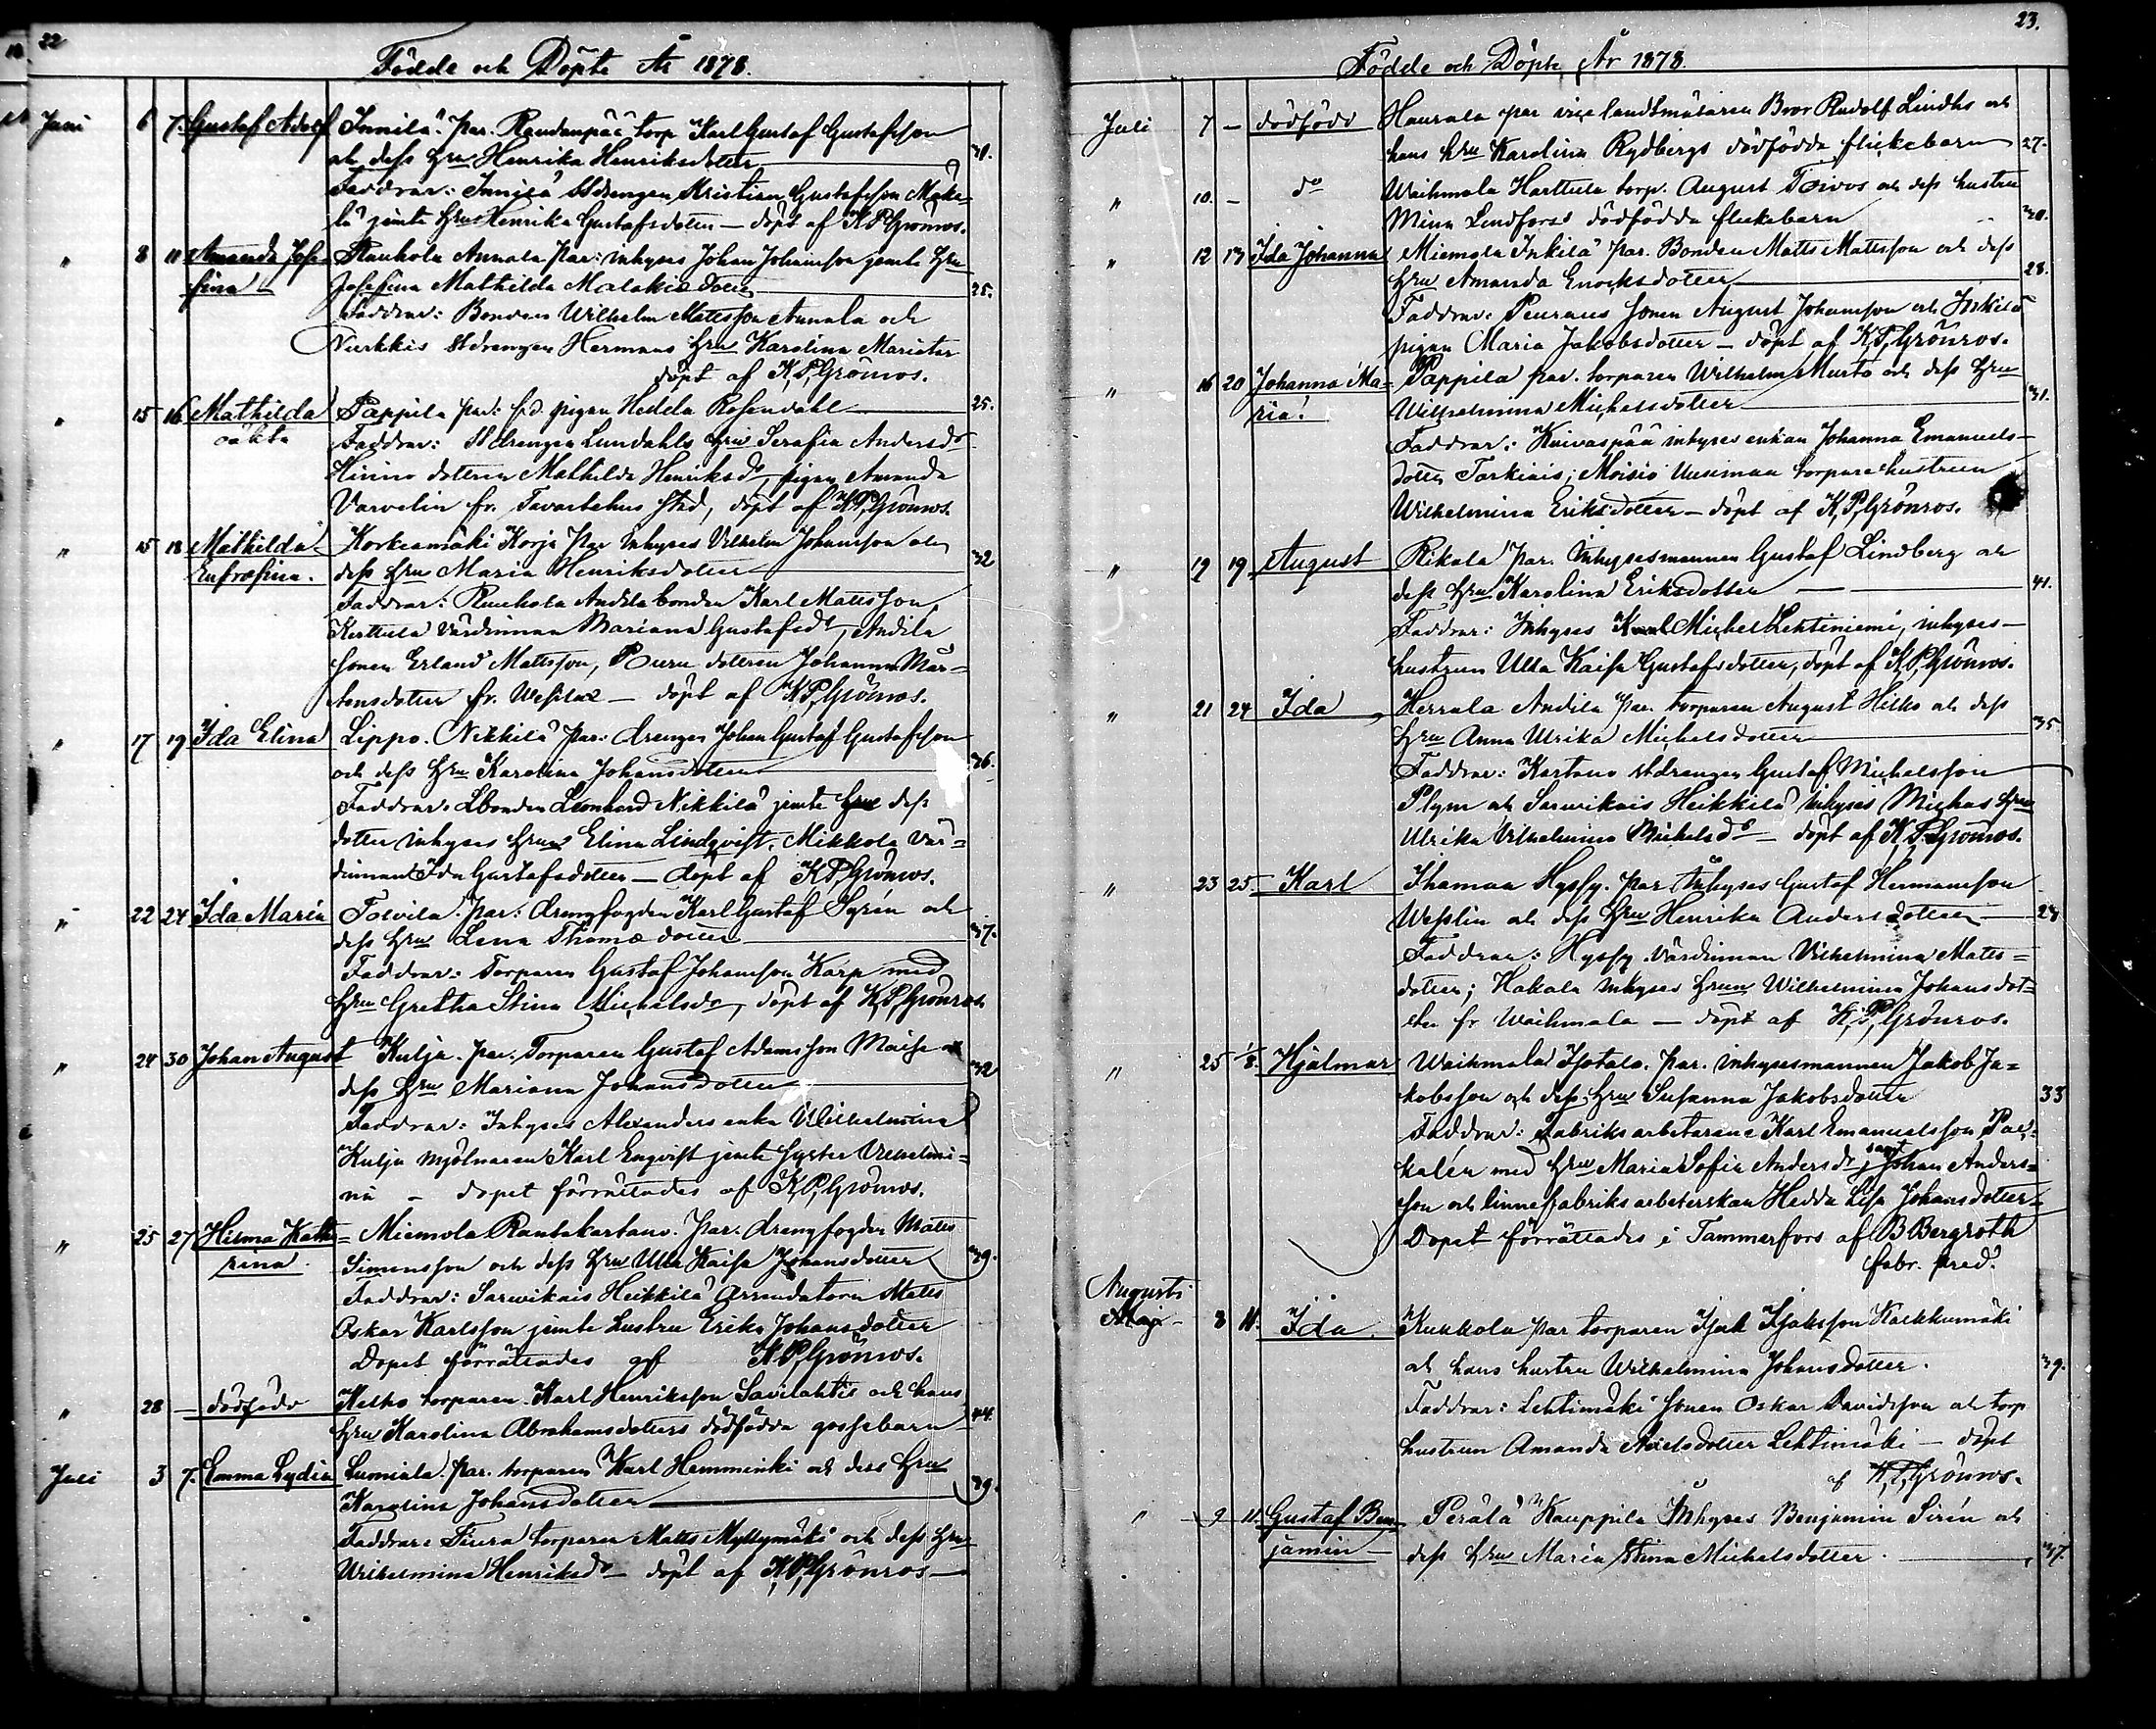 22
Födde och Döpte År 1878.
Juni 6 7. Gustaf Adolf Innilä. par. Randanpää torp Karl Gustaf Gustafsson
och dess hru Henrika Henriksdotter 31.
Faddrar: Innilä Stdrengen Kristian Gustafsson Mäke-
lä jemte hru Henrika Gustafsdotter — döpt af K P, Grönros.
" 8 11 Amanda Jose- Rauhola Annala par: inhyses Johan Johansson jemte hru
fina Josefina Mathilda Malakiasdotter 25.
Faddrar: Bonden Wilhelm Mattsson Annala och
Nurkkis Stdrengen Hermans hru Karolina
döpt af K, P, Grönros.
" 15 16 Mathilda Pappila par: pigan Hedda Rosendahl 25.
oäkta Faddrar: Stdrengen Lundahls hru Serafia Andersdr
dottren Mathilda Henriksdr, pigan Amanda
Varvelin fr. Tavastehus stad, döpt af K P, Grönros.
" 15 18 Mathilda Korkeamäki Korja par inhyses Vilhelm Johansson och
Eufrosina. dess hru Maria Henriksdotter 32
Faddrar: Anttila bonden Karl Mattsson,
Kerttula värdinnan Mariana Gustafsdr, Andila
sonen Erland Mattsson, dottren Johanna Mår-
tensdotter fr. — döpt af K P, Grönros.
" 17 19 Ida Elina Lippo. Nikkilä par: drengen Johan Gustaf Gustafsson
och dess hru Karolina Johansdotter 36.
Faddrar: Lbonden Leonhard Nikkilä jemte dess
dotter inhyses hru Elina Lindqvist. Mikkola vär-
dinnan Ida Gustafsdotter — döpt af K P, Grönros.
" 22 24 Ida Maria Toivila. par: drengfogden Karl Gustaf Syrén och
dess hru Lena Thomædotter 37.
Faddrar: Torparen Gustaf Johansson Karp med
hru Gretha Stina Michelsdr, döpt af K, P, Grönros.
" 24 30 Johan August Kulju. par. Torparen Gustaf Adamsson Maisi och
dess hru Mariana Johansdotter 32
Faddrar: Inhyses Alexanders enka Wilhelmina
Kulju mjölnaren Karl Enqvist jemte syster Vilhelmi-
na — dopet förrättades af K, P, Grönros.
" 25 27 Hilma Kath- Miemola Rantakartano. Par. drengfogden Matts
rina. Simonsson och dess hru Ulla Kaisa Johansdotter 39.
Faddrar: Sarvikais Heikkilä Arrendatorn Matts
Oskar Karlsson jemte hustru Erika Johansdotter
Dopet förrättades af K P, Grönros.
" 28 — dödfödd Kelho torparen Karl Henriksson Savilahtis och hans
hru Karolina Abrahamsdotters dödfödda gossebarn 44.
Juli 3 7. Emma Lydia Lumiala. Par. torparen Karl Hemminki och dess hru
Karolina Johansdotter 39.
Faddrar: torparen Matts Myllymäki och dess hru
Wilhelmina Henriksdr — döpt af K, P, Grönros —
23.
Födde och Döpte År 1878.
Juli 7 — dödfödd Haurala par vice landtmätaren Bror Rudolf Lindhs och
hans hru Karolina Rydbergs dödfödda flickebarn 27.
" 10. — do Waihmala Harttula torp. August Toivos och dess hustru
Mina Lindfors dödfödda flickebarn 30.
" 12 13 Ida Johanna Miemola Inkilä par. Bonden Matts Mattsson och dess
hru Amanda Enoksdotter 28.
Faddrar: sonen August Johansson och Inkilä
pigan Maria Jakobsdotter — döpt af K P, Grönros.
" 16 20 Johanna Ma- Pappila par. torparen Wilhelm Murto och dess hru
ria. Wilhelmina Michelsdotter 31.
Faddrar: Kuivaspää inhyses enkan Johanna Emanuels-
dotter Tarkiais; Moisio Uusimaa torparehustrun
Wilhelmina Eriksdotter — döpt af K, P, Grönros.
" 19 19 August Rikala par. Inhysesmannen Gustaf Lindberg och
dess hru Karolina Eriksdotter 41.
Faddrar: Inhyses Karl Michel Lehtiniemi, inhyses-
hustrun Ulla Kaisa Gustafsdotter, döpt af K P, Grönros.
" 21 24 Ida Herrala Andila par. torparen August Hilko och dess
hru Anna Ulrika Michelsdotter 35
Faddrar: Kartano Stdrengen Gustaf Michelsson
Plym och Sarvikais Heikkilä inhyses Michas hru
Ulrika Vilhelmina Michelsdr — döpt af K, P. Grönros.
" 23 25 Karl Ihamaa Hyssy. par inhyses Gustaf Hermansson
Wesslin och dess hru Henrika Andersdotter 28
Faddrar: Hyssy värdinnan Vilhelmina Matts-
dotter; Hakala inhyses hrun Wilhelmina Johansdot-
ter fr Waihmala — döpt af K, P, Grönros.
" 25 1/8. Hjalmar Waihmala Isotalo. par. inhysesmannen Jakob Ja-
kobsson och dess hru Susanna Jakobsdotter 33
Faddrar: Fabriksarbetarene Karl Emanuelsson
med hru Maria Sofia Andersdr, samt Johan Anders-
son och linnefabriksarbeterskan Hedda Lisa Johansdotter
Dopet förrättades i Tammerfors af B Bergroth
fabr. pred.
Augusti
Maj 8 11. Ida. Kukkola par torparen Isak Isaksson Kaukkumäki
och hans hustru Wilhelmina Johansdotter. 39.
Faddrar: Lehtimäki sonen Oskar Davidsson och torp
hustrun Amanda Axelsdotter Lehtimäki — döpt
af K, P, Grönros.
" 9 11. Gustaf Ben- Perälä Kauppila Inhyses Benjamin Sirén och
jamin dess hru Maria Stina Michelsdotter. 37.